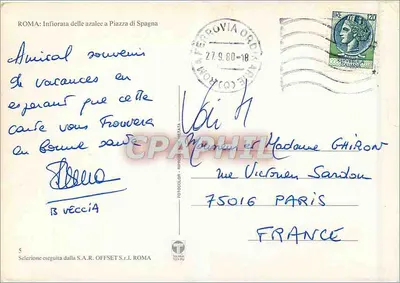 ROMA: Infiorata delle azalee a Piazza di Spagna
Amical souvenir
de vacances en
espérant que cette
carte vous trouvera
en bonne santé
B VECCIA
5
Selezione eseguita dalla S.A.R. OFFSET S.r.l. ROMA
ROMA FERROVIA ORDINARIE
27.9.80-18
120
CPAPHIL
Monsieur et Madame GHIRON
rue Victorien Sardou
75016 PARIS
FRANCE